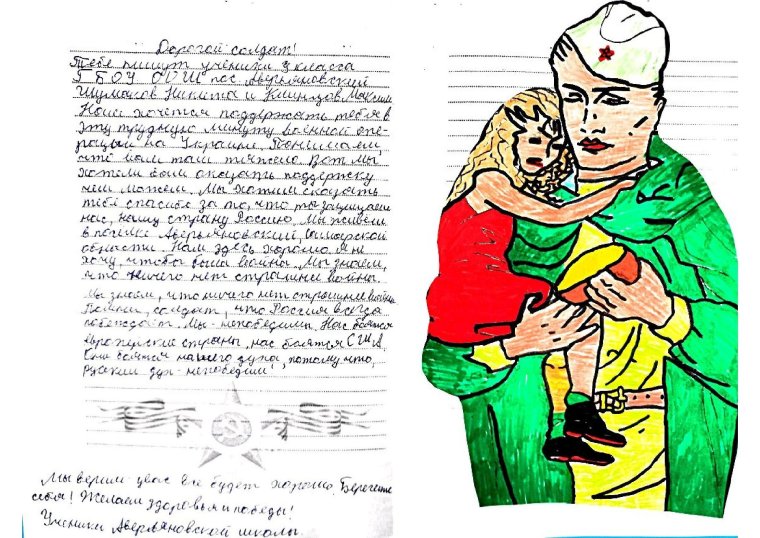 Дорогой солдат!
Тебе пишут ученики 3 класса
ГБОУ ООШ пос. Аверьяновский
Шумаков Никита и Кинцов Максим
Нам хочется поддержать тебя в
эту трудную минуту военной опе-
рации на Украине. Понимаем,
что вам там тяжело. Вот мы
хотели бы вам оказать поддержку
чем можем. Мы хотим сказать
тебе спасибо за то, что ты защищаешь
нас, нашу страну Россию. Мы живём
в посёлке Аверьяновский, Самарской
области. Нам здесь хорошо. Я не
хочу, чтобы была война. Мы знаем,
что ничего нет страшнее войны.
Мы знаем, что ничего нет страшнее войны
Помни, солдат, что Россия всегда
побеждает. Мы - непобедимы. Нас боятся
европейские страны, нас боятся США.
Они боятся нашего духа, потому что,
русский дух - непобедим!
Мы верим у вас все будет хорошо. Берегите
себя! Желаем здоровья и победы!
Ученики Аверьяновской школы.